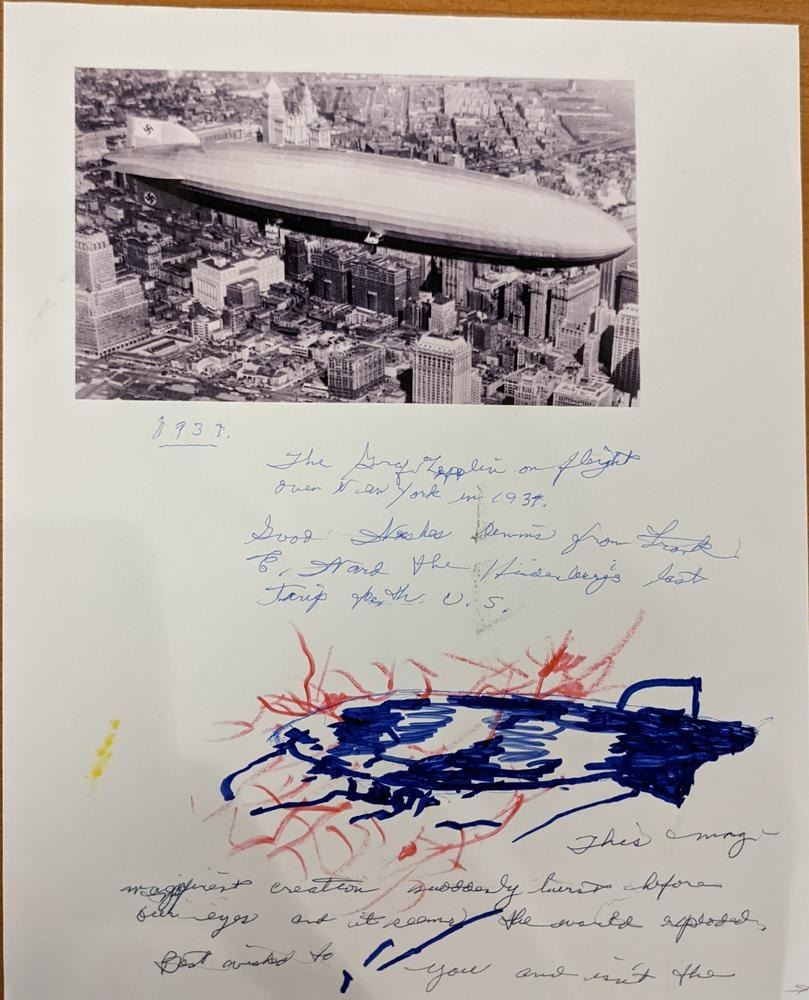 1937.
The Graf Zepplin on flight
over New York in 1937.
Good Wishes Dennis from Frank
E. Ward the Hindenberg's last
Trip to the U. S.
This
magnificent creation suddenly burst before
our eyes and it seems the world exploded,
Best wishes to you and isn't the